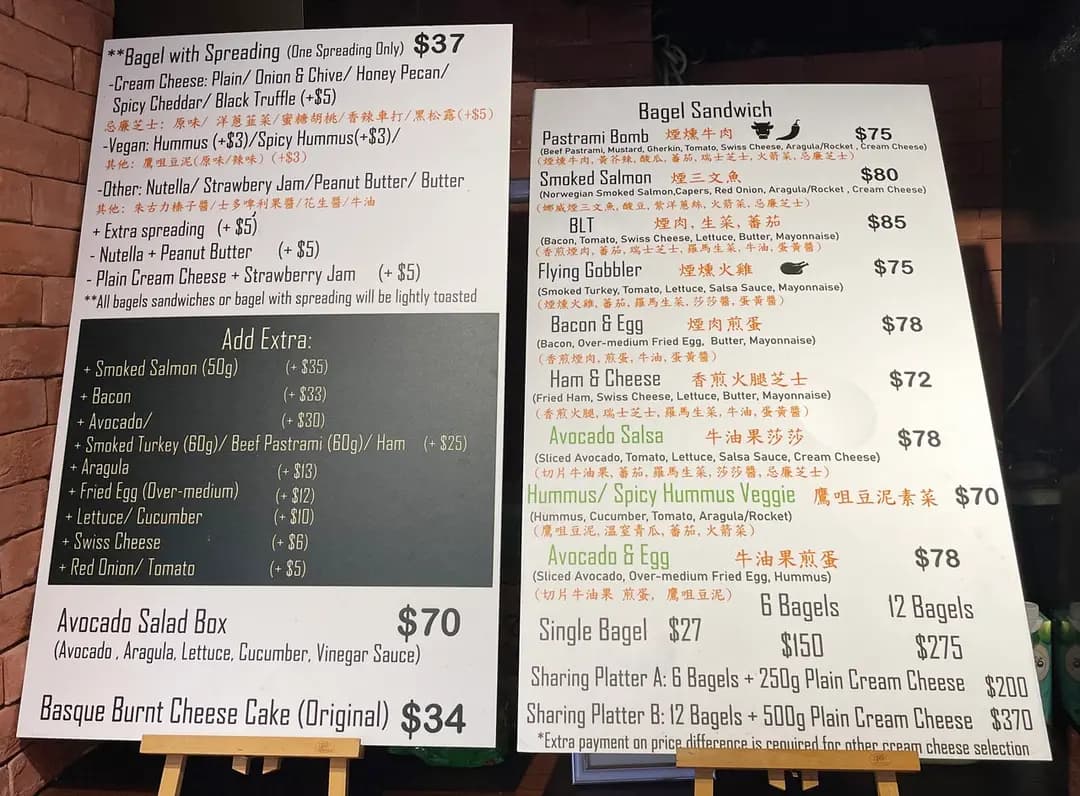 **Bagel with Spreading (One Spreading Only) $37
-Cream Cheese: Plain/ Onion & Chive/ Honey Pecan/
Spicy Cheddar/ Black Truffle (+$5)
忌廉芝士: 原味/ 洋蔥韮菜/蜜糖胡桃/香辣車打/黑松露(+$5)
-Vegan: Hummus (+$3)/Spicy Hummus(+$3)/
其他: 鷹咀豆泥(原味/辣味) (+$3)
-Other: Nutella/ Strawbery Jam/Peanut Butter/ Butter
其他: 朱古力榛子醬/士多啤利果醬/花生醬/牛油
+ Extra spreading (+ $5)
- Nutella + Peanut Butter (+ $5)
- Plain Cream Cheese + Strawberry Jam (+ $5)
**All bagels sandwiches or bagel with spreading will be lightly toasted
Add Extra:
+ Smoked Salmon (50g) (+ $35)
+ Bacon (+ $33)
+ Avocado/ (+ $30)
+ Smoked Turkey (60g)/ Beef Pastrami (60g)/ Ham (+ $25)
+ Aragula (+ $13)
+ Fried Egg (Over-medium) (+ $12)
+ Lettuce/ Cucumber (+ $10)
+ Swiss Cheese (+ $6)
+ Red Onion/ Tomato (+ $5)
Avocado Salad Box $70
(Avocado , Aragula, Lettuce, Cucumber, Vinegar Sauce)
Basque Burnt Cheese Cake (Original) $34
Bagel Sandwich
Pastrami Bomb 煙燻牛肉 $75
(Beef Pastrami, Mustard, Gherkin, Tomato, Swiss Cheese, Aragula/Rocket , Cream Cheese)
(煙燻牛肉, 黃芥辣, 酸瓜, 蕃茄, 瑞士芝士, 火箭菜, 忌廉芝士)
Smoked Salmon 煙三文魚 $80
(Norwegian Smoked Salmon,Capers, Red Onion, Aragula/Rocket , Cream Cheese)
(娜威煙三文魚, 酸豆, 紫洋蔥絲, 火箭菜, 忌廉芝士)
BLT 煙肉, 生菜, 蕃茄 $85
(Bacon, Tomato, Swiss Cheese, Lettuce, Butter, Mayonnaise)
(香煎煙肉, 蕃茄, 瑞士芝士, 羅馬生菜, 牛油, 蛋黃醬)
Flying Gobbler 煙燻火雞 $75
(Smoked Turkey, Tomato, Lettuce, Salsa Sauce, Mayonnaise)
(煙燻火雞, 蕃茄, 羅馬生菜, 莎莎醬, 蛋黃醬)
Bacon & Egg 煙肉煎蛋 $78
(Bacon, Over-medium Fried Egg, Butter, Mayonnaise)
(香煎煙肉, 煎蛋, 牛油, 蛋黃醬)
Ham & Cheese 香煎火腿芝士 $72
(Fried Ham, Swiss Cheese, Lettuce, Butter, Mayonnaise)
(香煎火腿, 瑞士芝士, 羅馬生菜, 牛油, 蛋黃醬)
Avocado Salsa 牛油果莎莎 $78
(Sliced Avocado, Tomato, Lettuce, Salsa Sauce, Cream Cheese)
(切片牛油果, 蕃茄, 羅馬生菜, 莎莎醬, 忌廉芝士)
Hummus/ Spicy Hummus Veggie 鷹咀豆泥素菜 $70
(Hummus, Cucumber, Tomato, Aragula/Rocket)
(鷹咀豆泥, 溫室青瓜, 蕃茄, 火箭菜)
Avocado & Egg 牛油果煎蛋 $78
(Sliced Avocado, Over-medium Fried Egg, Hummus)
(切片牛油果 煎蛋, 鷹咀豆泥)
6 Bagels 12 Bagels
Single Bagel $27 $150 $275
Sharing Platter A: 6 Bagels + 250g Plain Cream Cheese $200
Sharing Platter B: 12 Bagels + 500g Plain Cream Cheese $370
*Extra payment on price difference is required for other cream cheese selection